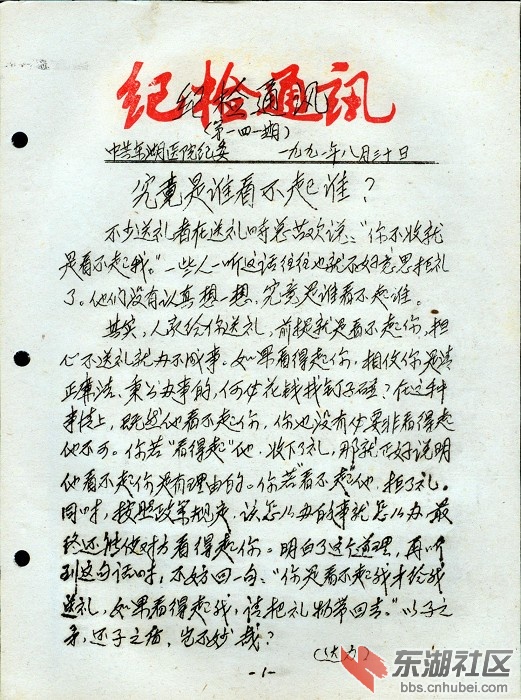 纪检通讯
纪检通讯
(第一四一期)
中共东湖医院纪委 一九九一年八月三十日
究竟是谁看不起谁?
不少送礼者在送礼时总喜欢说:“你不收就
是看不起我。”一些人一听这话往往也就不好意思拒礼
了。他们没有认真想一想,究竟是谁看不起谁。
其实,人家给你送礼,前提就是看不起你,担
心不送礼就办不成事。如果看得起你,相信你是清
正廉洁、秉公办事的,何必花钱找钉子碰?在这种
事情上,既然他看不起你,你也没有必要非看得起
他不可。你若“看得起”他,收下了礼,那就正好说明
他看不起你是有理由的。你若“看不起”他,拒了礼。
同时,按照政策规定,该怎么办的事就怎么办,最
终还能使对方看得起你。明白了这个道理,再听
到这句话时,不妨回一句:“你是看不起我才给我
送礼,如果看得起我,请把礼物带回去。”以子之
矛,还子之盾,岂不妙哉?
(达方)
-1-
东湖社区
bbs.cnhubei.com